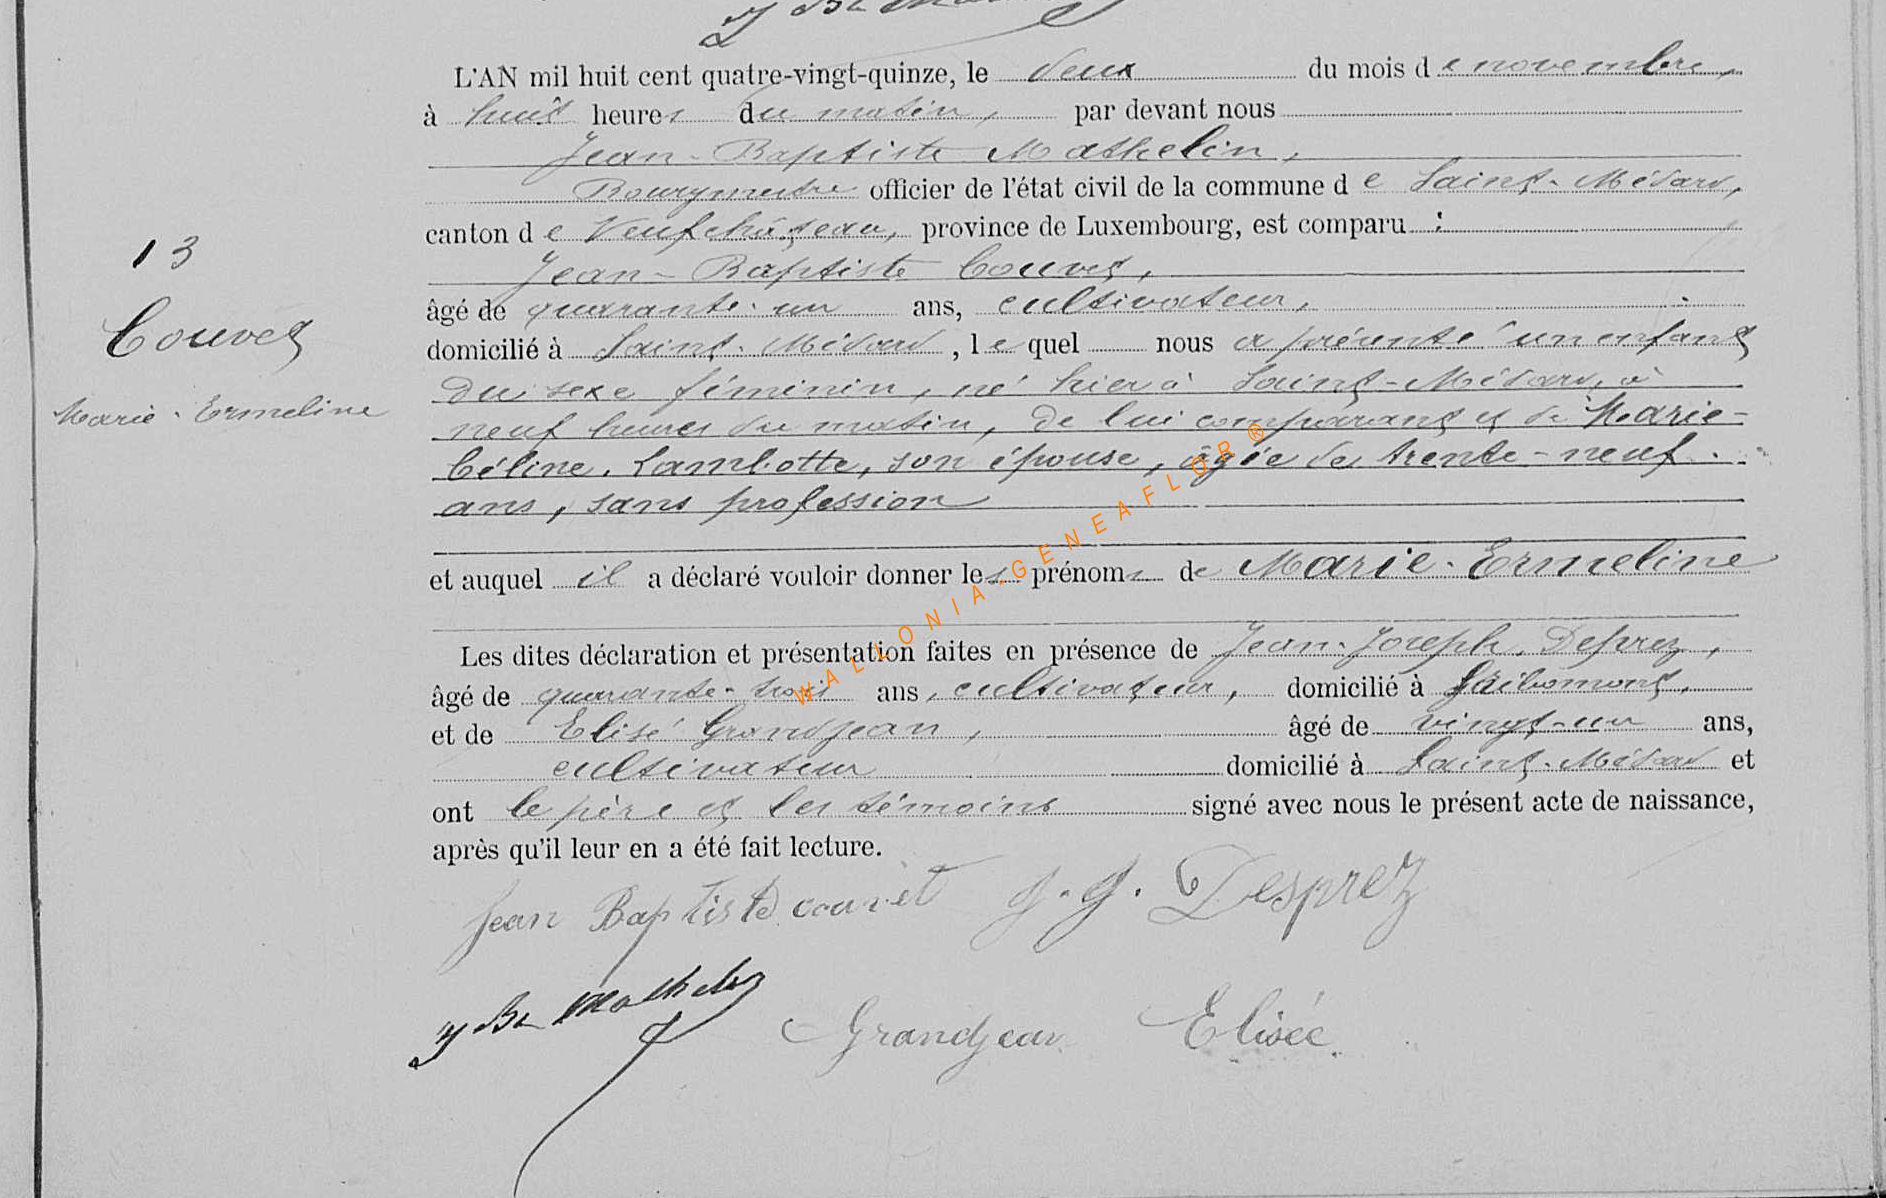 L'AN mil huit cent quatre-vingt-quinze, le deux du mois de novembre,
à huit heures du matin, par devant nous
Jean-Baptiste Mathelin,
Bourgmestre officier de l'état civil de la commune de Saint-Médard,
canton de Neufchâteau, province de Luxembourg, est comparu :
13
Jean-Baptiste Couvet,
âgé de quarante-un ans, cultivateur,
Couvet
domicilié à Saint-Médard, lequel nous a présenté un enfant
du sexe féminin, né hier à Saint-Médard, à
Marie-Ermeline
neuf heures du matin, de lui comparant et de Marie-
Céline Lambotte, son épouse, âgée de trente-neuf
ans, sans profession
et auquel il a déclaré vouloir donner les prénoms de Marie-Ermeline
WALLONIA-GENEAFLOR ®
Les dites déclaration et présentation faites en présence de Jean-Joseph Desprez,
âgé de quarante-trois ans, cultivateur, domicilié à Gribomont,
et de Elisé Grandjean, âgé de vingt-un ans,
cultivateur domicilié à Saint-Médard et
ont le père et les témoins signé avec nous le présent acte de naissance,
après qu'il leur en a été fait lecture.
Jean Baptiste couvet J. J. Desprez
J Bte Mathelin
Grandjean Elisée